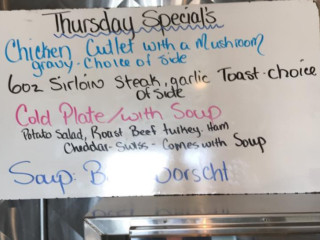 Thursday Special's
Chicken Cutlet with a Mushroom
gravy. Choice of side
6oz Sirloin Steak, garlic Toast. choice
of side
Cold Plate/with Soup
Potato Salad, Roast Beef turkey. Ham
Cheddar-Swiss- Comes with Soup
Soup: